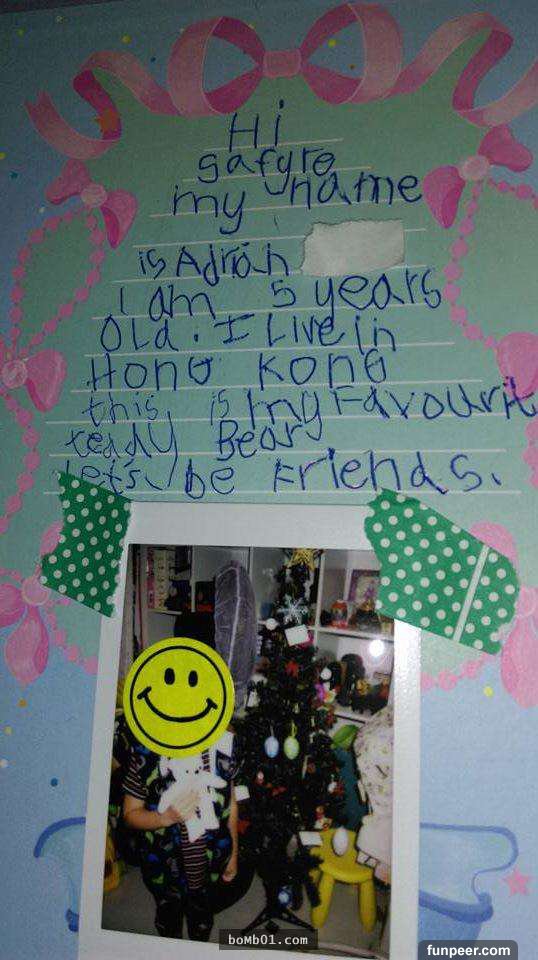 Hi
gafyro
my name
is Adrian
I am 5 years
Old. I Live in
HonG KonG
this is my Favourit
teady Bear
let's be Friends.
boMb01.com
funpeer.com